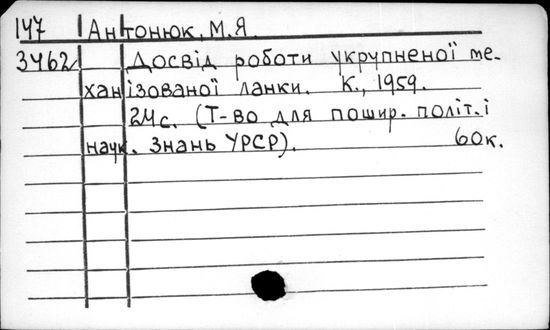 147 Антонюк, М.Я.
3462 Досвід роботи укрупненої ме-
ханізованої ланки. К., 1959.
24с. (Т-во для пошир. політ. і
наук. Знань УРСР). 60к.